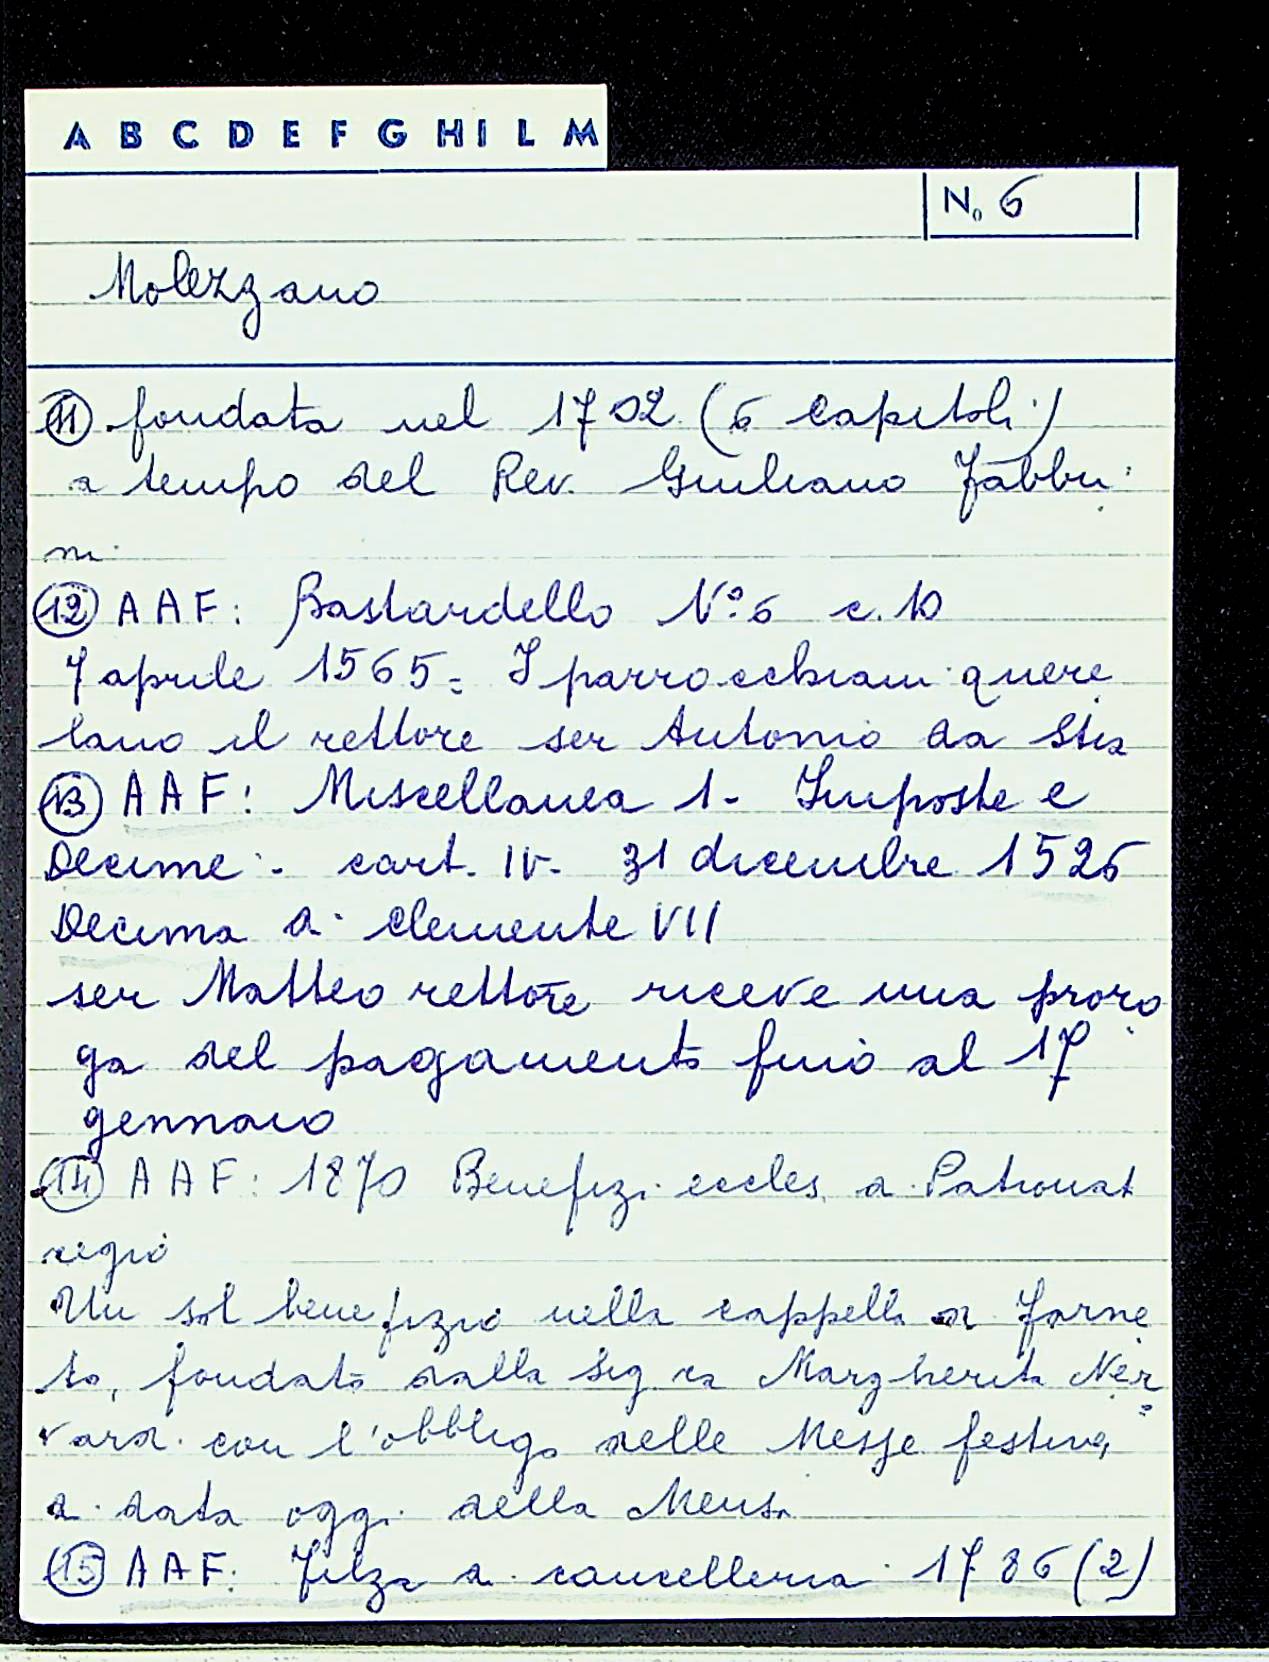 A B C D E F G H I L M
No 6
Molezzano
(11) fondata nel 1702 (6 Capitoli)
a tempo del Rev. Giuliano Fabbri
ni
(12) AAF: Bastardello N° 6 c. 10
7 aprile 1565= I parrocchiani quere
lano il rettore ser Antonio da Stia
(13) AAF: Miscellanea 1- Imposte e
Decime - cart. IV- 31 dicembre 1526
Decima di Clemente VII
ser Matteo rettore riceve una proro
ga del pagamento fino al 17
gennaio
(14) AAF: 1870 Benefizi eccles. di Patronat
regio
Un sol benefizio nella cappella di Farne
to, fondato dalla Sig ra Margherita Ner
vardi con l'obbligo delle Messe festive,
di data oggi della Mensa
(15) AAF: Filza di cancelleria 1786 (2)